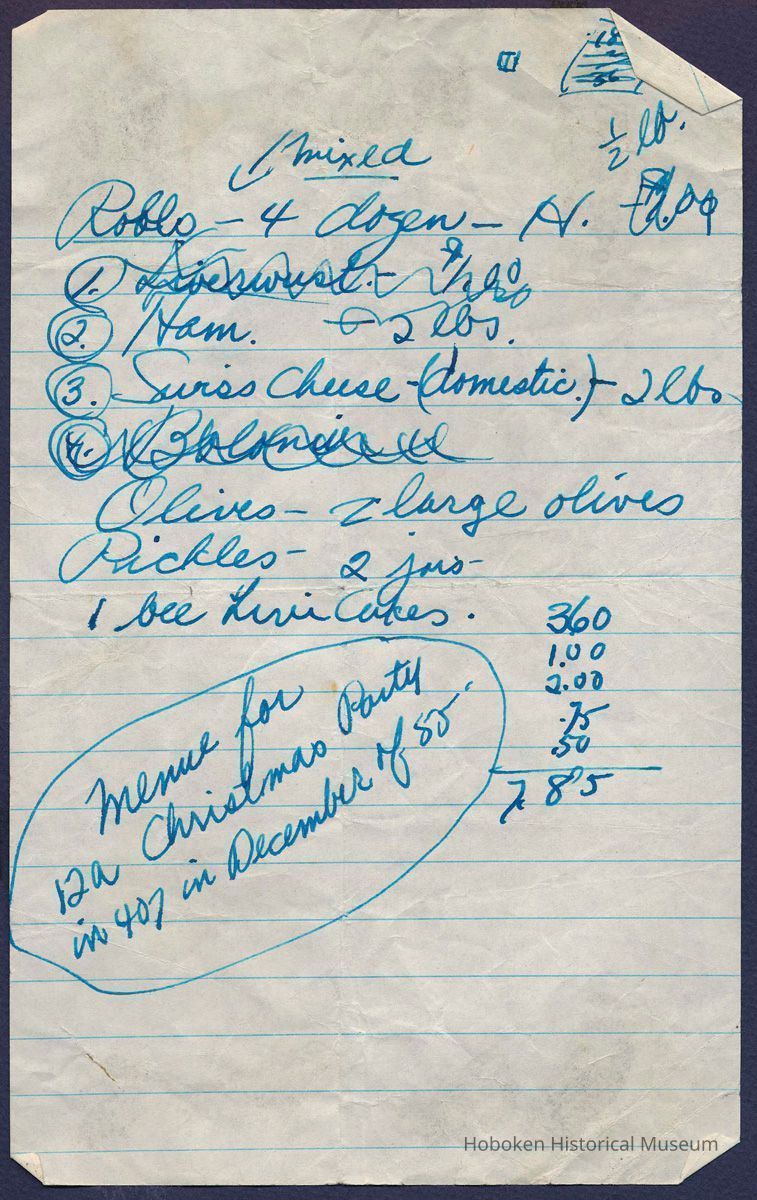 18
56
½ lb.
mixed
Rolls - 4 dozen - H.
1. Liverwurst. - ½
2. Ham. - 2 lbs.
3. Swiss Cheese - (domestic.) - 2 lbs
4. Bolonia
Olives - 2 large olives
Pickles - 2 jars -
1 box
360
1.00
2.00
.75
.50
7.85
Menue for
12a Christmas Party
in 407 in December of 55.
Hoboken Historical Museum